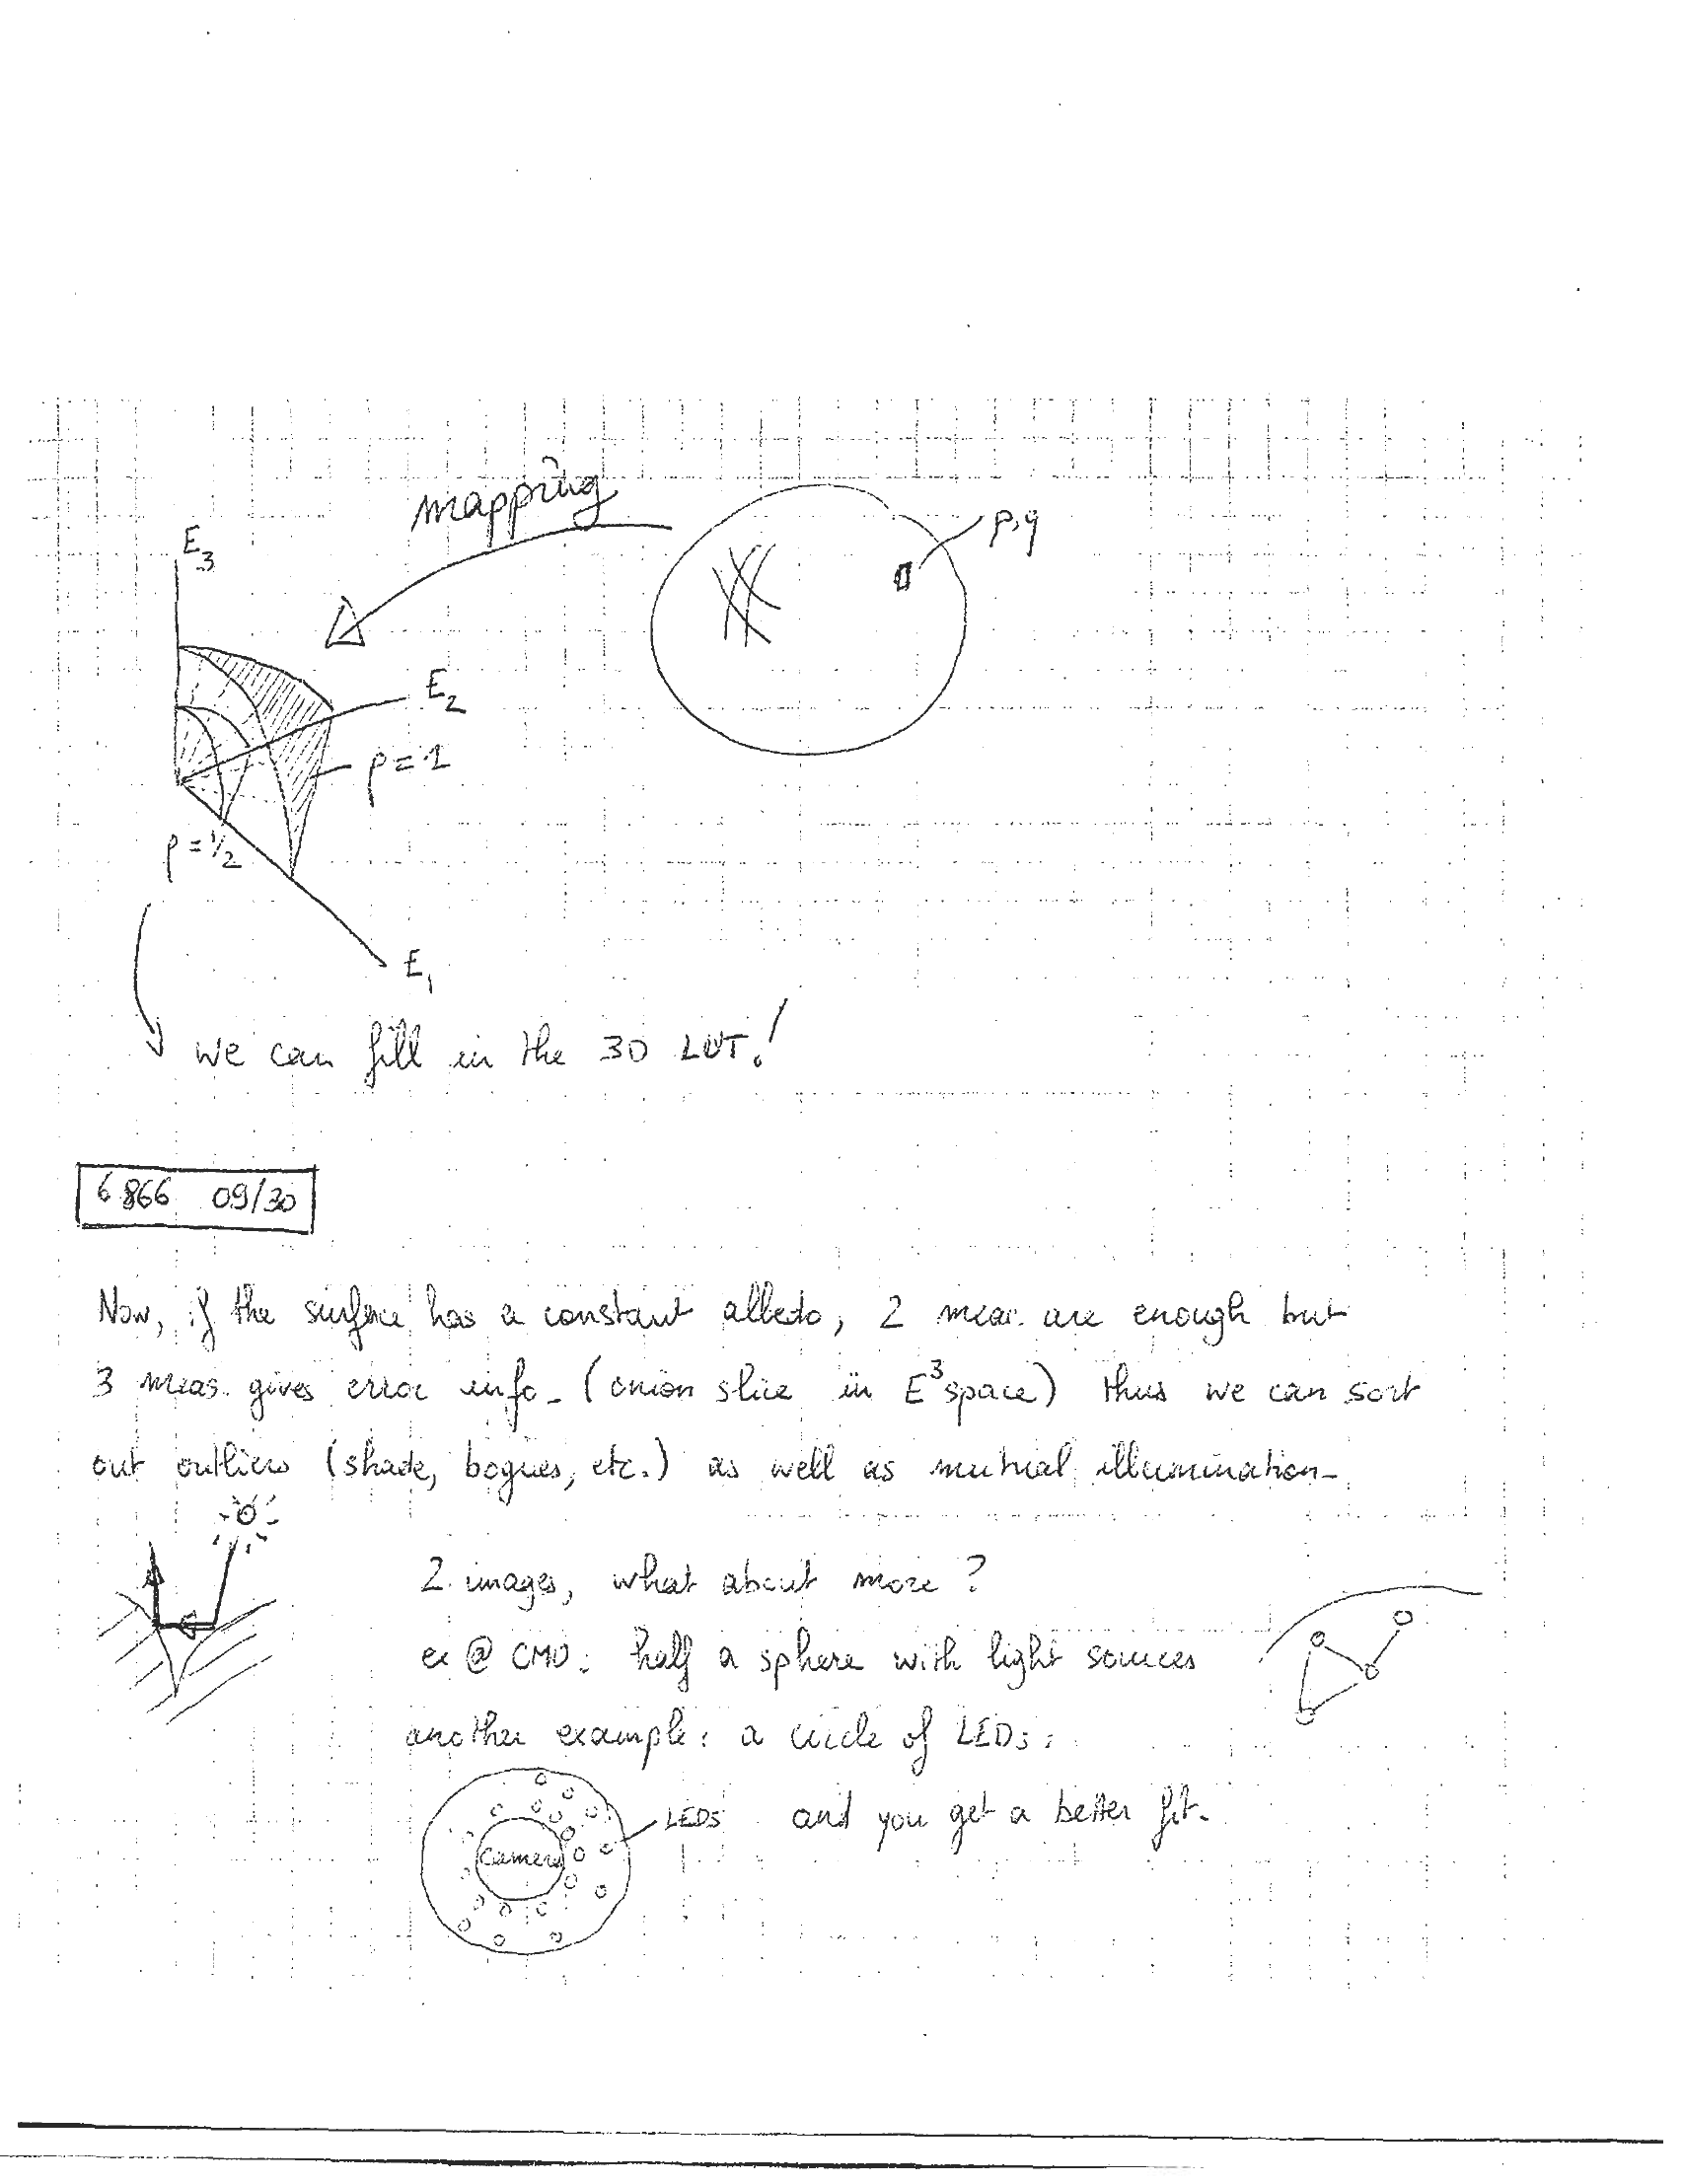 mapping
p,q
E3
E2
ρ=1
ρ=1/2
E1
we can fill in the 3D LUT!
6 866 09/30
Now, if the surface has a constant albedo, 2 meas. are enough but
3 meas. gives error info. (onion slice in E³ space) thus we can sort
out outliers (shade, bogues, etc.) as well as mutual illumination.
2 images, what about more?
ex @ CMU: half a sphere with light sources
another example: a circle of LEDs:
LEDS and you get a better fit.
Camera